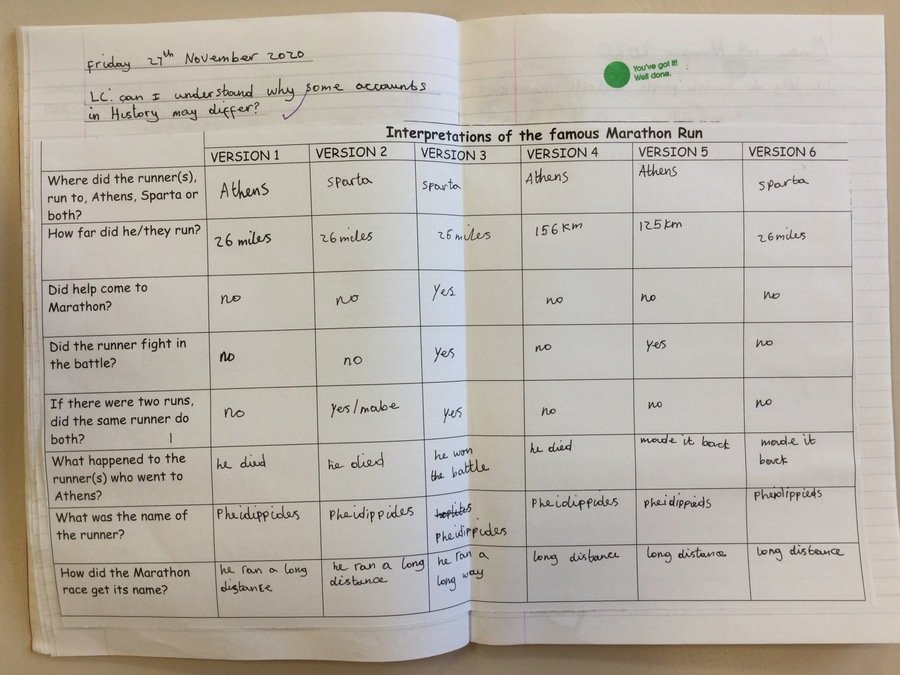 Friday 27th November 2020
You've got it!
Well done.
LC: can I understand why some accounts
in History may differ?
Interpretations of the famous Marathon Run
VERSION 1 VERSION 2 VERSION 3 VERSION 4 VERSION 5 VERSION 6
Where did the runner(s),
run to, Athens, Sparta or
both?
Athens sparta sparta Athens Athens sparta
How far did he/they run?
26 miles 26 miles 26 miles 156 km 125km 26 miles
Did help come to
Marathon?
no no Yes no no no
Did the runner fight in
the battle?
no no Yes no Yes no
If there were two runs,
did the same runner do
both?
no Yes/mabe Yes no no no
What happened to the
runner(s) who went to
Athens?
he died he died he won
the battle he died made it back made it
back
What was the name of
the runner?
Pheidippides Pheidippides hoplites
Pheidippides Pheidippides pheidippieds pheidippieds
How did the Marathon
race get its name?
he ran a long
distance he ran a long
distance he ran a
long way long distance long distance long distance